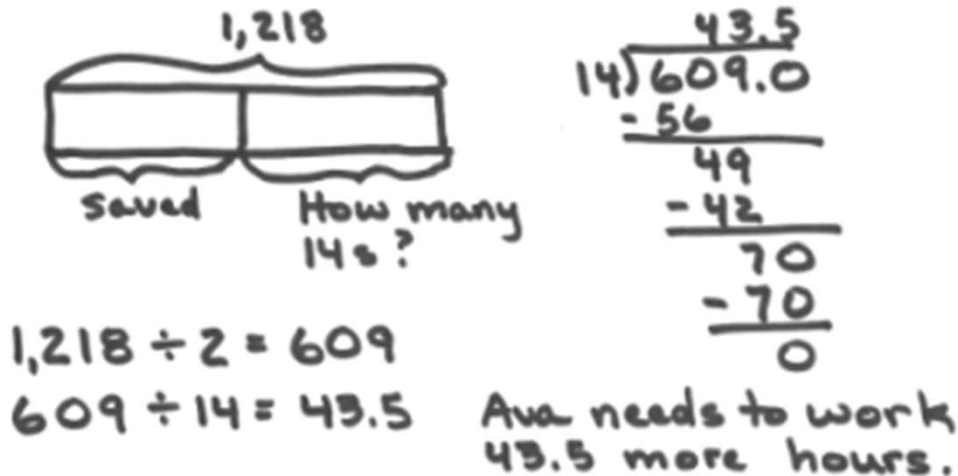 1,218
saved
How many
14s?
1,218 ÷ 2 = 609
609 ÷ 14 = 43.5
43.5
14)609.0
- 56
49
- 42
70
- 70
0
Ava needs to work
43.5 more hours.